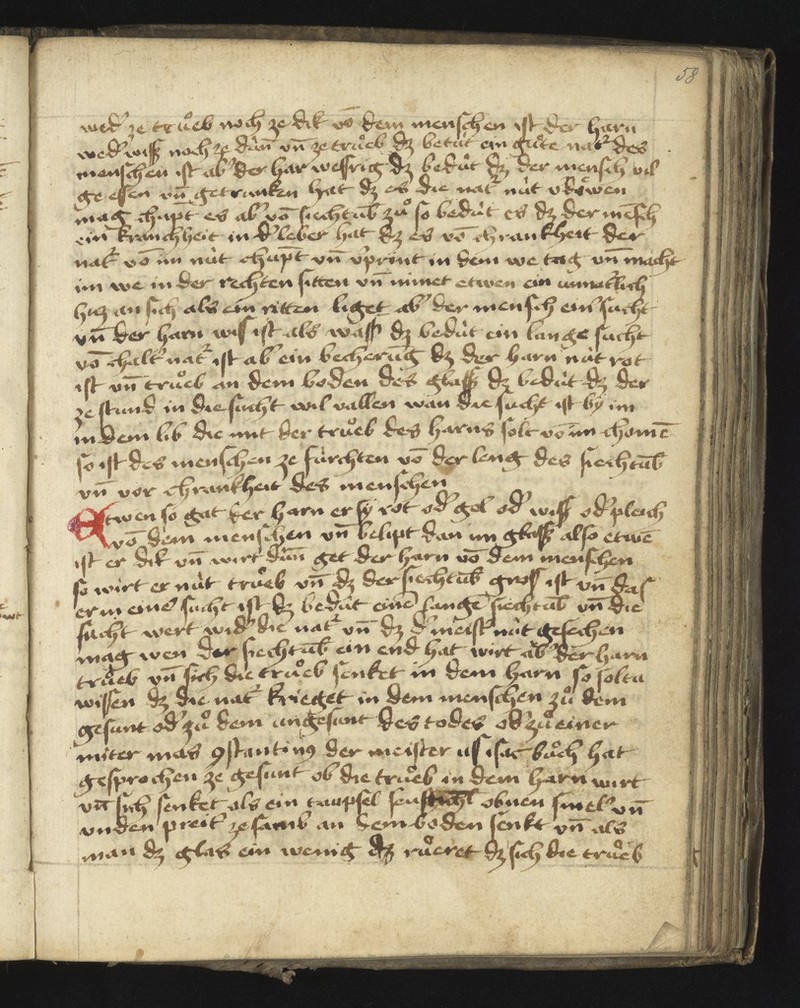 58
wed' ze trůb noch ze dik vō dem menschen ist der harn
wed' wiss noch ze dün̄ vn̄ ze trůb dz betüt ein gůte nat' des
menschen ist ab' der har wessrig dz bedüt dz der mensch vil
geessen vn̄ getrunken hat dz es die nat' nüt v'döwen
mag chupt es ab' vō siechtūb zů so bedüt es dz der mēsch
ein kranchheit in d' leber hat dz es vō chrankheit der
nat' vō im nüt chupt vn̄ v'print in dem we tag vn̄ macht
im we in der rechten sitten vn̄ nimet etwen ein unnatlich
hicz an sich als ein ritten liget ab' der mensch ein' sucht
vn̄ der harn wis ist als wass dz bedüt ein lange sucht
vō chalt' nat' ist ab' ein becherūg dz der harn nüt rot
ist vn̄ trůb an dem boden des glass dz bedüt dz der
ze stund in die sucht wil vallen wan die sucht ist by im
in dem lib die mit der trůb des harns solt vō im chomē
so ist des menschen ze fürchten vō der leng des siechtūb
vn̄ vor chrankheit des menschen
Etwen so gat der harn er sy rot od' gel od' wiss od' pleich
vō dem menschen vn̄ belipt dan im glass also etwē
ist er dik vn̄ wirt dün̄ get der harn vō dem menschen
so wirt er nüt trůb vn̄ dz der siechtūb gross ist vn̄ das
er in eine' sucht ist dz bedüt einē langē siechtūb vn̄ die
sucht wert wid' die nat' vn̄ dz d' meist' nüt gesechen
mag wen der siechtūb ein end hat wirt ab' der harn
trůb vn̄ sich die trůb senket in dem harn so soltu
wissen dz die nat' krieget in dem menschen zů dem
gesunt od' zů dem ungesunt des todes od' zů einer
miter mas 9stantin9 der meister us isac bůch hat
gesprochen ze gesunt ob die trůb in dem harn wirt
vn̄ sich senket als ein trupfel obnen smel' vn̄
unden preit' ze samb an dem boden senkt vn̄ als
man dz glas ein wenig růeret dz sich die trůb